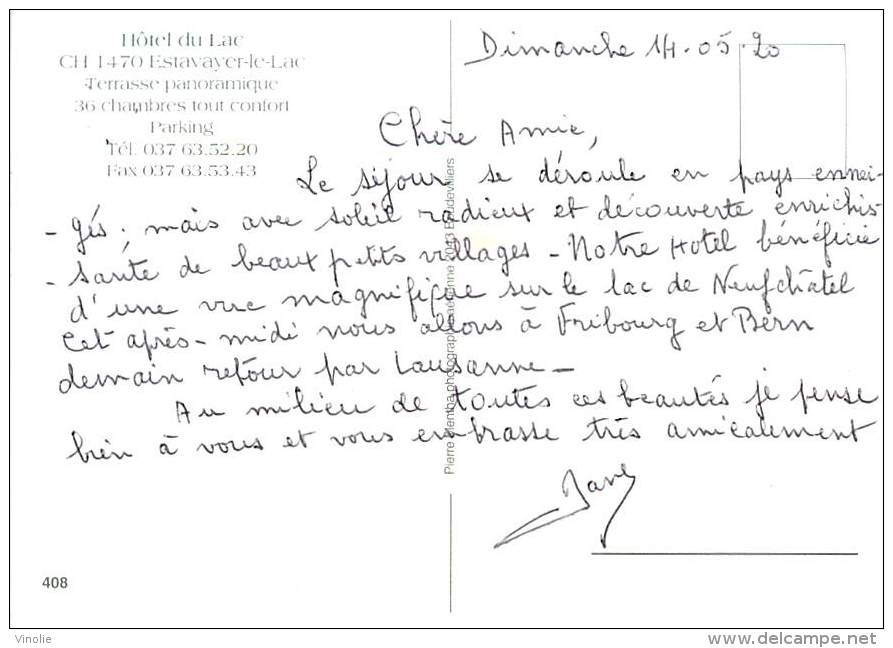 Hôtel du Lac
CH 1470 Estavayer-le-Lac
Terrasse panoramique
36 chambres tout confort
Parking
Tél. 037 63.52.20
Fax 037 63.53.43
Dimanche 14.05.20
Chère Amie,
Le séjour se déroule en pays ennei-
-gés, mais avec soleil radieux et découverte enrichis-
-sante de beaux petits villages - Notre Hotel bénéficie
d'une vue magnifique sur le lac de Neufchâtel
Cet après-midi nous allons à Fribourg et Bern
demain retour par Lausanne -
Au milieu de toutes ces beautés je pense
bien à vous et vous embrasse très amicalement
Pierre photographe 2043 Boudevilliers
408
Vinolie
www.delcampe.net